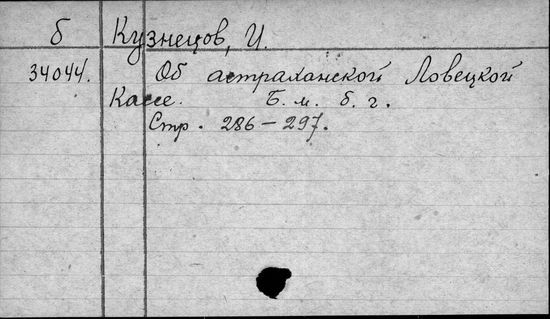 б Кузнецов, И.
34044. Об астраханской Ловецкой
Кассе. Б. м. б. г.
Стр. 286-297.